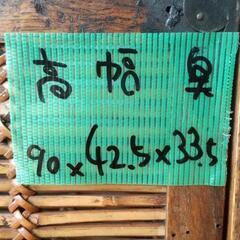 高 幅 奥
90×42.5×33.5